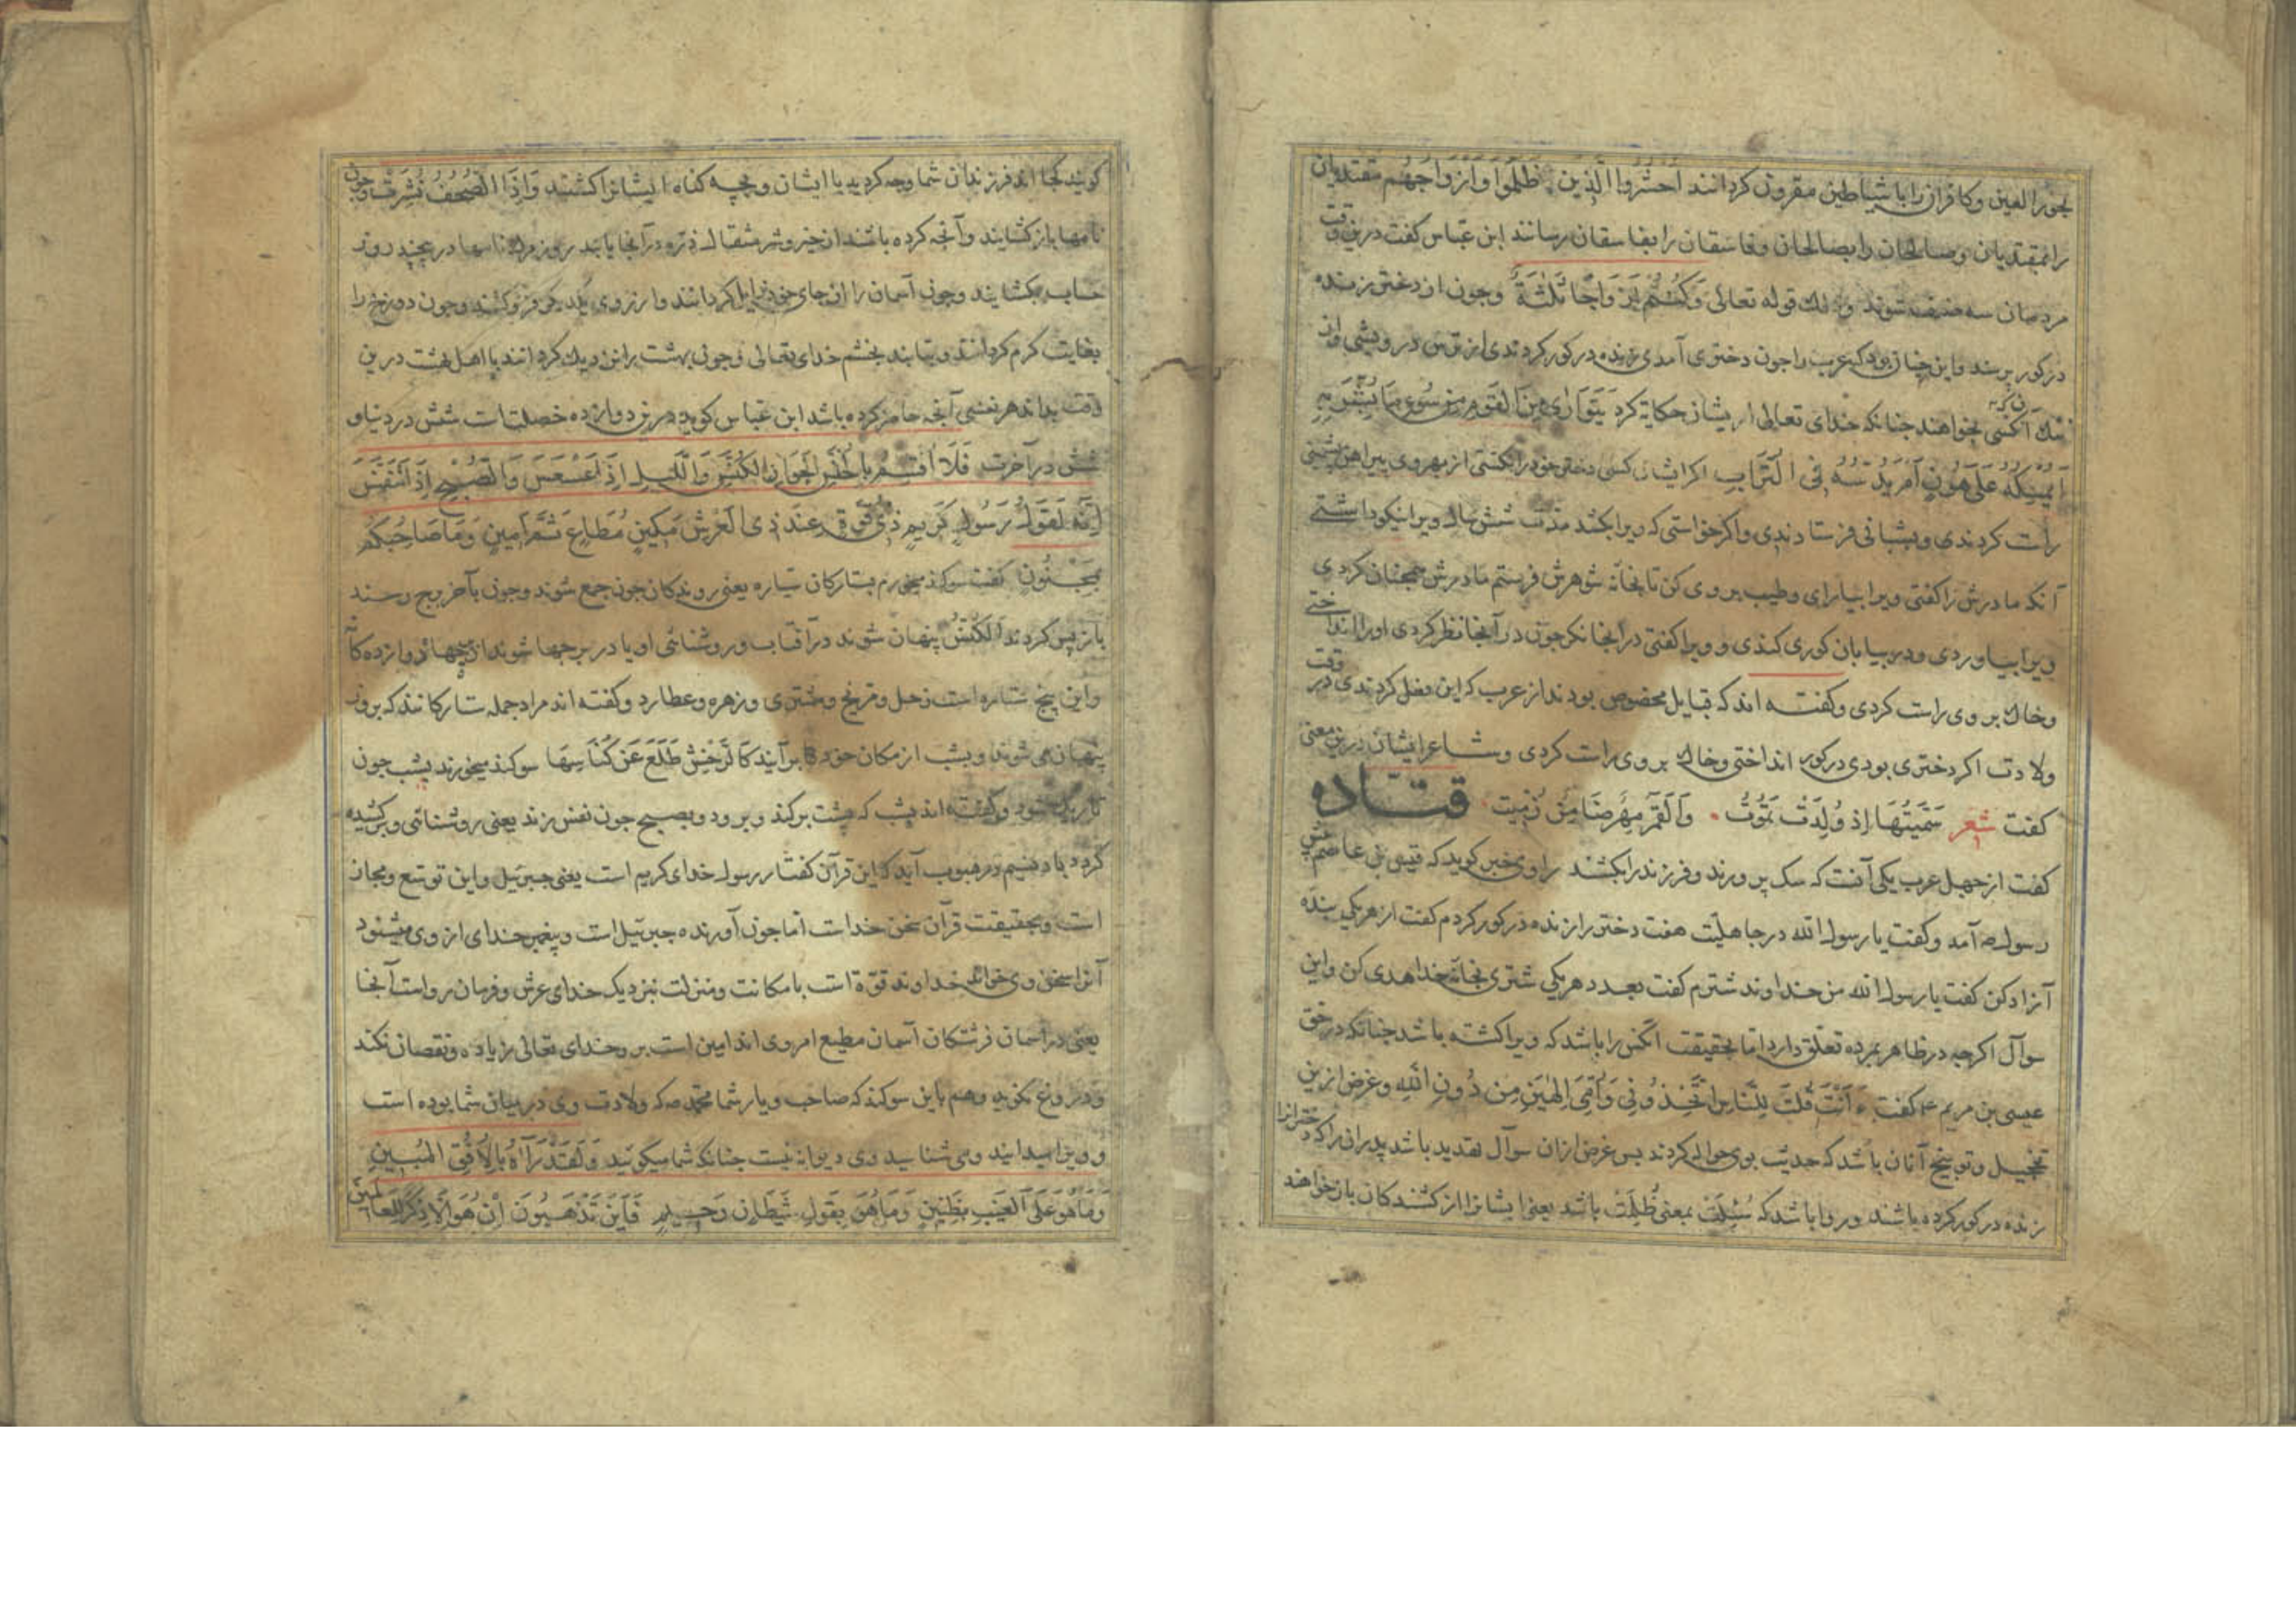 بحور العین و کافران را با شیاطین مقرون کردانند اُحْشُرُوا الَّذِینَ ظَلَمُوا وَاَزْوَاجَهُمْ مقتدیان
را بمقتدیان و صالحان را بصالحان و فاسقان را بفاسقان رسانند ابن عبّاس کفت درین وقت
مردمان سه صنف شوند و ذلك قوله تعالی وَکُنْتُمْ اَزْوَاجًا ثَلٰثَةً و چون از دختر زنده
در کور پرسند و این چنان بود که عرب را چون دختری آمدی زنده در کور کردندی از ترس درویشی و از
ننك آنکه کسی بخواهند چنانکه خدای تعالی از یشان حکایة کرد یَتَوَارٰی مِنَ الْقَوْمِ مِنْ سُوءِ مَا بُشِّرَ بِهِ
اَیُمْسِکُهُ عَلٰی هُونٍ اَمْ یَدُسُّهُ فِی التُّرَابِ اکر ازیشان کسی دختر خود را نکشتی از بهر وی پیراهن پشمین
راست کردندی و بشبانی فرستادندی و اکر خواستی که ویرا بکشد مدّت شش سال ویرا نیکو داشتی
آنکه مادرش را کفتی ویرا بیارای و طیب بر وی کن تا بخانهٔ شوهرش فرستم مادرش همچنان کردی
ویرا بیاوردی و در بیابان کوری کندی و ویرا کفتی در آنجا نکر چون در آنجا نظر کردی او را انداختی
و خاك بر وی راست کردی و کفته اند که قبایل مخصوص بودند از عرب که این فعل کردندی در وقت
ولادت اکر دختری بودی در کور انداختی و خاك بر وی راست کردی و شاعر ایشان درین معنی
کفت شعر سَمَّیْتُهَا اِذْ وُلِدَتْ تَمُوتُ وَالْقَبْرُ صِهْرٌ ضَامِنٌ زِمِّیتُ قتاده
کفت از جهل عرب یکی آنست که سک پرورند و فرزند را بکشند راوی خبر کوید که قیس بن عاصم پیش
رسول صه آمد و کفت یا رسول الله در جاهلیّت هفت دختر را زنده در کور کردم کفت از هر یکی بندهٔ
آزاد کن کفت یا رسول الله من خداوند شترم کفت بعدد هر یکی شتری بخانهٔ خدا هدی کن و این
سوآل اکرچه در ظاهر بمرده تعلّق دارد اما بحقیقت آنکس را باشد که ویرا کشته باشد چنانکه در حق
عیسی بن مریم ع کفت ءَاَنْتَ قُلْتَ لِلنَّاسِ اتَّخِذُونِی وَاُمِّیَ اِلٰهَیْنِ مِنْ دُونِ اللّٰهِ و غرض ازین
تخجیل و توبیخ آنان باشد که حدیث بوی حواله کردند پس غرض از آن سوآل تهدید باشد پدران را که دختران را
زنده در کور کرده باشند و روا باشد که سُئِلَتْ بمعنی طُلِبَتْ باشد یعنی ایشانرا از کشندکان باز خواهند
کویند کجا اند فرزندان شما و چه کردید با ایشان و بچه کناه ایشانرا کشتید وَاِذَا الصُّحُفُ نُشِرَتْ و چون
نامها باز کشایند و آنچه کرده باشند از خیر و شر مثقال ذرّه در آنجا یابند روز مرك نامها در پیچند روز
حساب بکشایند و چون آسمان را از جای خود زایل کردانند و از روی یکدیکر فرو کشند و چون دوزخ را
بغایت کرم کردانند و بتابند بخشم خدای تعالی و چون بهشت را نزدیك کردانند با اهل بهشت درین
وقت بداند هر نفسی آنچه حاضر کرده باشد ابن عبّاس کوید درین دوازده خصلتست شش در دنیا و
شش در آخرت فَلَا اُقْسِمُ بِالْخُنَّسِ الْجَوَارِ الْکُنَّسِ وَاللَّیْلِ اِذَا عَسْعَسَ وَالصُّبْحِ اِذَا تَنَفَّسَ
اِنَّهُ لَقَوْلُ رَسُولٍ کَرِیمٍ ذِی قُوَّةٍ عِنْدَ ذِی الْعَرْشِ مَکِینٍ مُطَاعٍ ثَمَّ اَمِینٍ وَمَا صَاحِبُکُمْ
بِمَجْنُونٍ کفت سوکند میخورم بستارکان سیّاره یعنی روندکان چون جمع شوند و چون بآخر برج رسند
باز پس کردند الْکُنَّسُ پنهان شوند در آفتاب و روشنائی او یا در برجها شوند از برجهاء دوازده کانه
و این پنج ستاره است زحل و مرّیخ و مشتری و زهره و عطارد و کفته اند مراد جمله ستارکانند که بروز
پنهان می شوند و بشب از مکان خود برآیند سوکند میخورند بشب چون
تاریك شود و کفته اند بشب که پشت برکند و برود و بصبح چون نفس زند یعنی روشنائی وی برکشیده
کردد باد نسیم در هبوب آید که این قرآن کفتار رسول خدای کریم است یعنی جبرئیل و این توسّع و مجاز
است و بحقیقت قرآن سخن خداست امّا چون آورنده جبرئیل است و پیغمبر خدای از وی میشنود
آنرا سخن وی خواند خداوند قوّة است با مکانت و منزلت نزدیك خدای عرش و فرمان رواست آنجا
یعنی در آسمان فرشتکان آسمان مطیع امر وی اند امین است بر وحی خدای تعالی زیاده و نقصان نکند
و دروغ نکوید و هم باین سوکند که صاحب و یار شما محمّد صه که ولادت وی در میان شما بوده است
و ویرا میدانید و می شناسید وی دیوانه نیست چنانکه شما میکویید وَلَقَدْ رَاٰهُ بِالْاُفُقِ الْمُبِینِ
وَمَا هُوَ عَلَی الْغَیْبِ بِظَنِینٍ وَمَا هُوَ بِقَوْلِ شَیْطَانٍ رَجِیمٍ فَاَیْنَ تَذْهَبُونَ اِنْ هُوَ اِلَّا ذِکْرٌ لِلْعَالَمِینَ